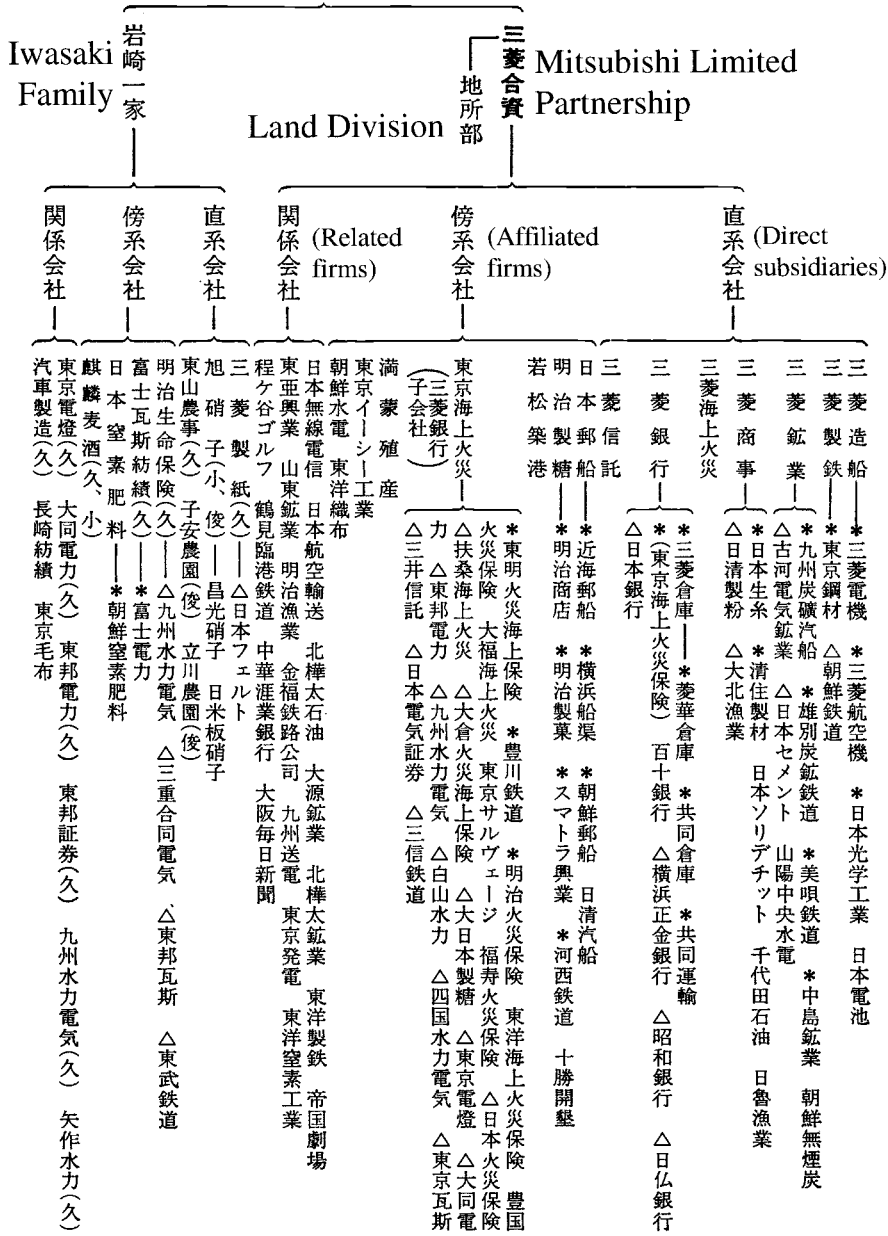 三菱合資
Mitsubishi Limited
Partnership
地所部
Land Division
岩崎一家
Iwasaki
Family
直系会社
(Direct
subsidiaries)
傍系会社
(Affiliated
firms)
関係会社
(Related
firms)
直系会社
傍系会社
関係会社
三菱造船──＊三菱電機 ＊三菱航空機 ＊日本光学工業 日本電池
三菱製鉄──＊東京鋼材 △朝鮮鉄道
三菱鉱業──＊九州炭礦汽船 ＊雄別炭鉱鉄道 ＊美唄鉄道 ＊中島鉱業 朝鮮無煙炭
△古河電気鉱業 △日本セメント 山陽中央水電
三菱商事──＊日本生糸 ＊清住製材 日本ソリデチット 千代田石油 日魯漁業
△日清製粉 △大北漁業
三菱海上火災
三菱銀行──＊三菱倉庫──＊菱華倉庫 ＊共同倉庫 ＊共同運輸
＊(東京海上火災保険) 百十銀行 △横浜正金銀行 △昭和銀行 △日仏銀行
△日本銀行
三菱信託
日本郵船──＊近海郵船 ＊横浜船渠 ＊朝鮮郵船 日清汽船
明治製糖──＊明治商店 ＊明治製菓 ＊スマトラ興業 ＊河西鉄道 十勝開墾
若松築港
東京海上火災
(三菱銀行
子会社)
＊東明火災海上保険 ＊豊川鉄道 ＊明治火災保険 東洋海上火災保険 豊国
火災保険 大福海上火災 東京サルヴェージ 福寿火災保険 △日本火災保険
△扶桑海上火災 △大倉火災海上保険 △大日本製糖 △東京電燈 △大同電
力 △東邦電力 △九州水力電気 △白山水力 △四国水力電気 △東京瓦斯
△三井信託 △日本電気証券 △三信鉄道
満蒙殖産
東京イーシー工業
朝鮮水電 東洋織布
日本無線電信 日本航空輸送 北樺太石油 大源鉱業 北樺太鉱業 東洋製鉄 帝国劇場
東亜興業 山東鉱業 明治漁業 金福鉄路公司 九州送電 東京発電 東洋窒素工業
程ケ谷ゴルフ 鶴見臨港鉄道 中華滙業銀行 大阪毎日新聞
三菱製紙(久)──△日本フェルト
旭硝子(小、俊)──昌光硝子 日米板硝子
東山農事(久) 子安農園(俊) 立川農園(俊)
明治生命保険(久)──△九州水力電気 △三重合同電気 △東邦瓦斯 △東武鉄道
富士瓦斯紡績(久)──＊富士電力
日本窒素肥料──＊朝鮮窒素肥料
麒麟麦酒(久、小)
東京電燈(久) 大同電力(久) 東邦電力(久) 東邦証券(久) 九州水力電気(久) 矢作水力(久)
汽車製造(久) 長崎紡績 東京毛布